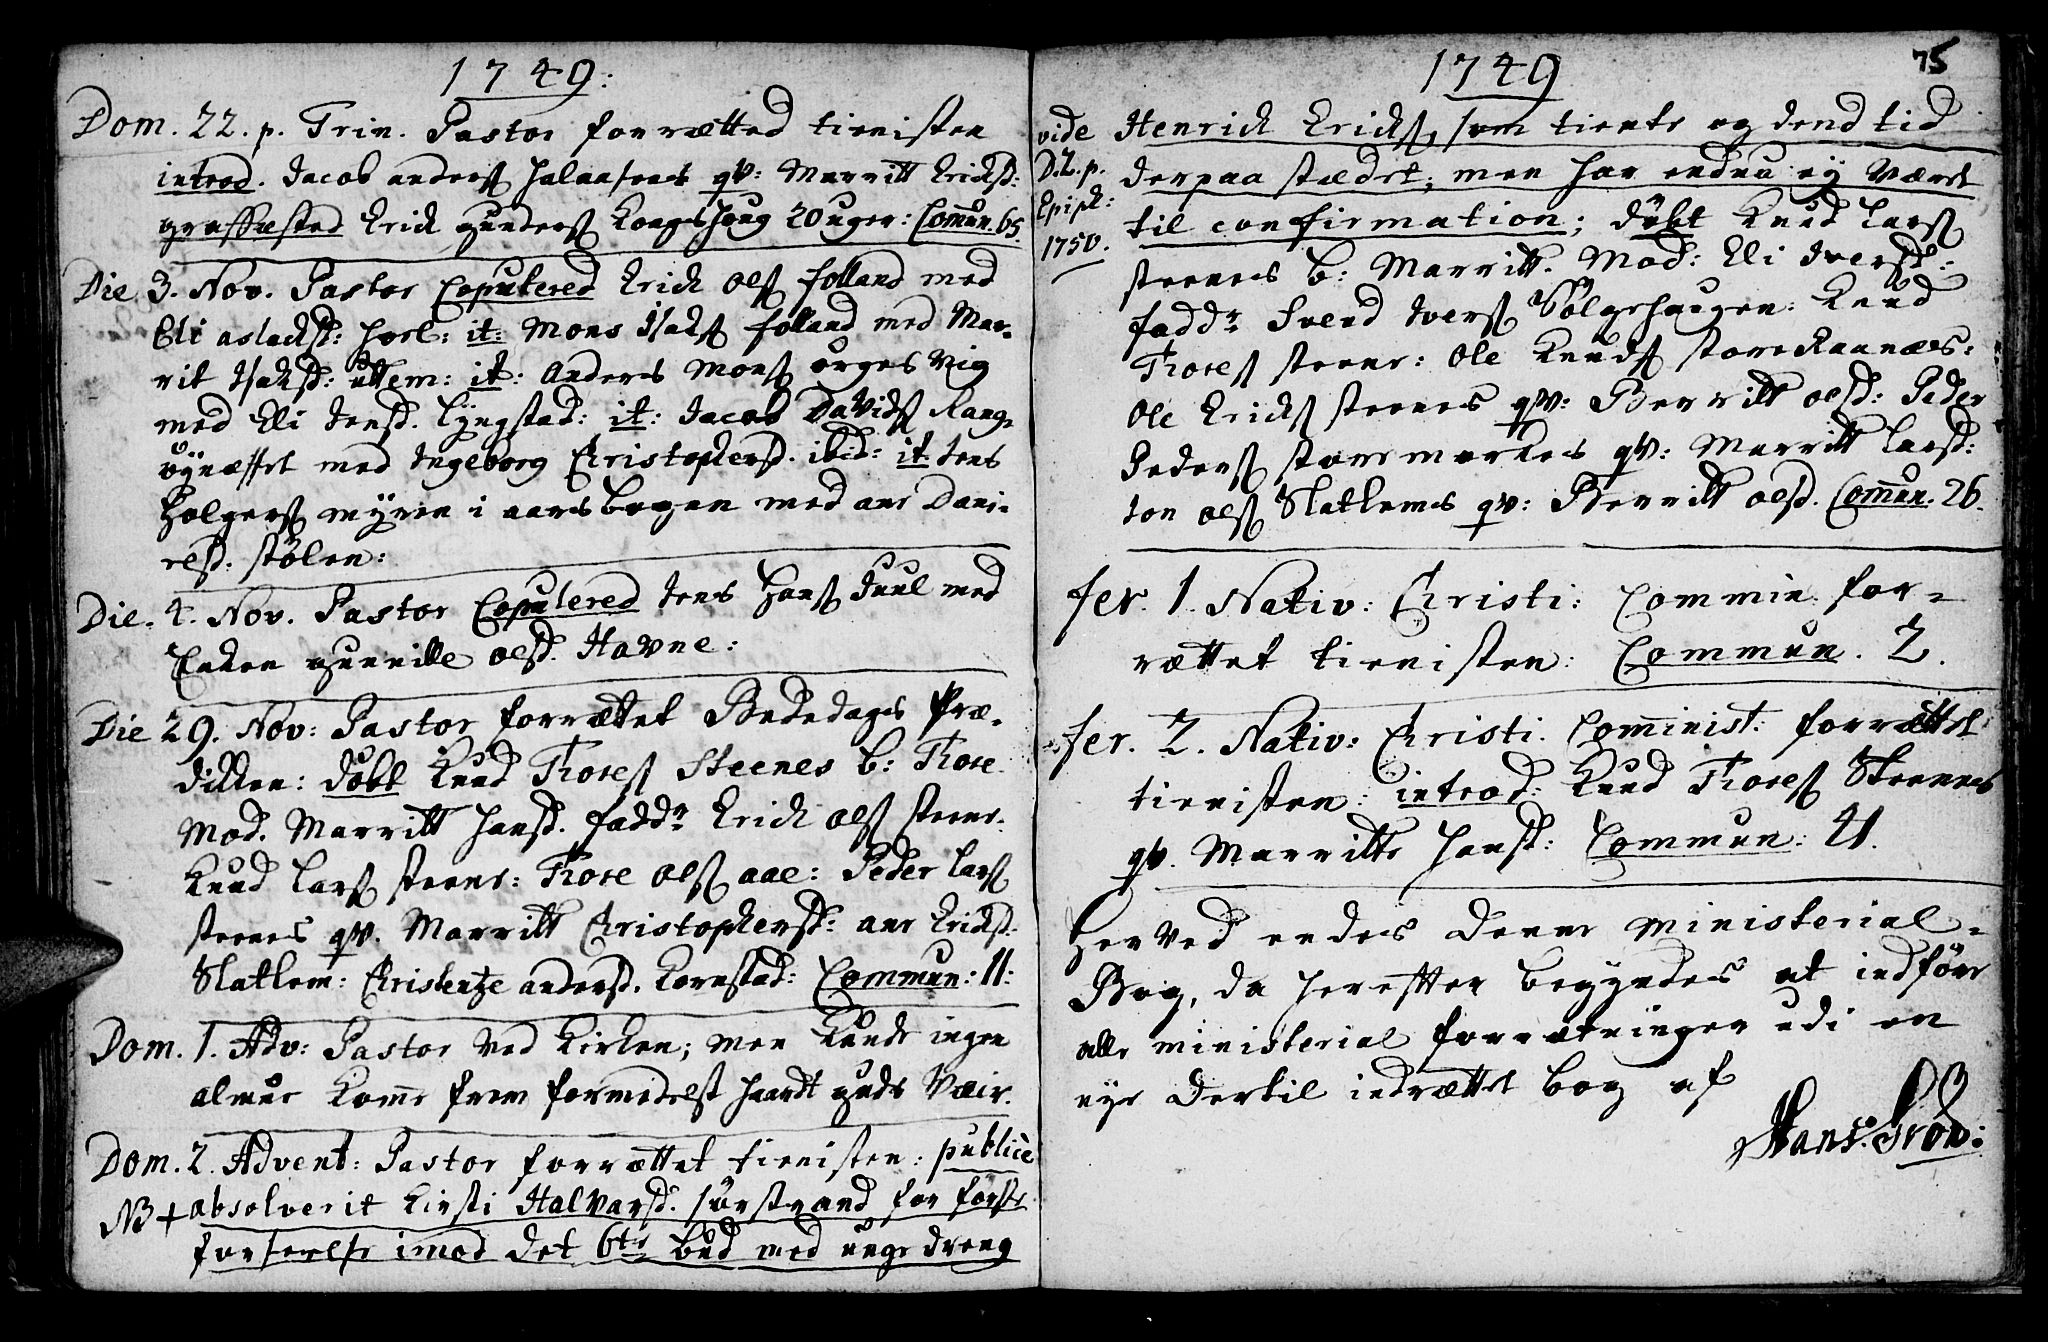 1749:
Dom. 22. p. Trin. Pastor forrætted tienisten
introd. Jacob anders halaasens qv: Marritt Ericksd:
graffæsted Erick gunders Kongshoug 20 uger: Comun. 65.
Die 3. Nov. Pastor Copulered Erick Ols folland med
Eli aslachsd: hoel: it: Mons Isaks folland med Mar-
rit Isaksd: uttem: it: Anders Mons ørges vig
med Eli Jensd. Lyngstad: it: Jacob Davids Rang-
øynæsset med Ingeborg Christophersd. ibid: it Jens
Holgers myren i aarsbogen med ane Dani-
elsd. stølen:
Die. 4. Nov. Pastor Copulered Jens Hans Juul med
Enken gunnille olsd. Havne:
Die 29. Nov: Pastor forrættet Bededags Præ-
dikken: døbt Knud Thores Steenes b: Thore
Mod. Marritt hansd. faddr Erick ols steens.
Knud Lars steens: Thore ols aae: Peder Lars
steenes qv. Marritt Christophersd: ane Ericksd.
Slatlem: Christentze andersd. Kornstad: Commun: 11:
Dom. 1. Adv: Pastor ved Kirken; men Kunde ingen
almue Komme frem formedelst haardt guds Væir.
Dom. 2. Advent: Pastor forrættet tienisten: publice
NB + absolverit Kirsti Halvarsd. sørstrand for første
forseelse imod det 6te bud med unge dreng
75
1749
vide Henrich Ericks, som tiente og dend tid
D. 2. p. derpaa stædet; men har endnu ey været
Epiph: til confirmation; døbt Knud Lars
1750. steenes b: Marritt. Mod: Eli Iversd:
faddr Svend Ivers Sølgehaugen: Knud
Thores steens: Ole Knuds store Raanæs:
Ole Ericks steenes qv: Berritt olsd: Peder
Peders stormorkes qv: Marritt Larsd:
Jon ols Slatlems qv: Berritt olsd. Comun. 26.
fer. 1. Nativ: Christi: Commin. for-
rættet tienisten: Commun. 2.
fer. 2. Nativ: Christi. Cominist: forrættet
tienisten: introd: Knud Thores Steenes
qv. Marritte hansd: Commun: 21.
Herved endes denne ministerial-
Bog, da herefter begyndes at indføre
alle ministerial forrætninger udi en
nye dertil indrættet bog af
Hans Grøn: